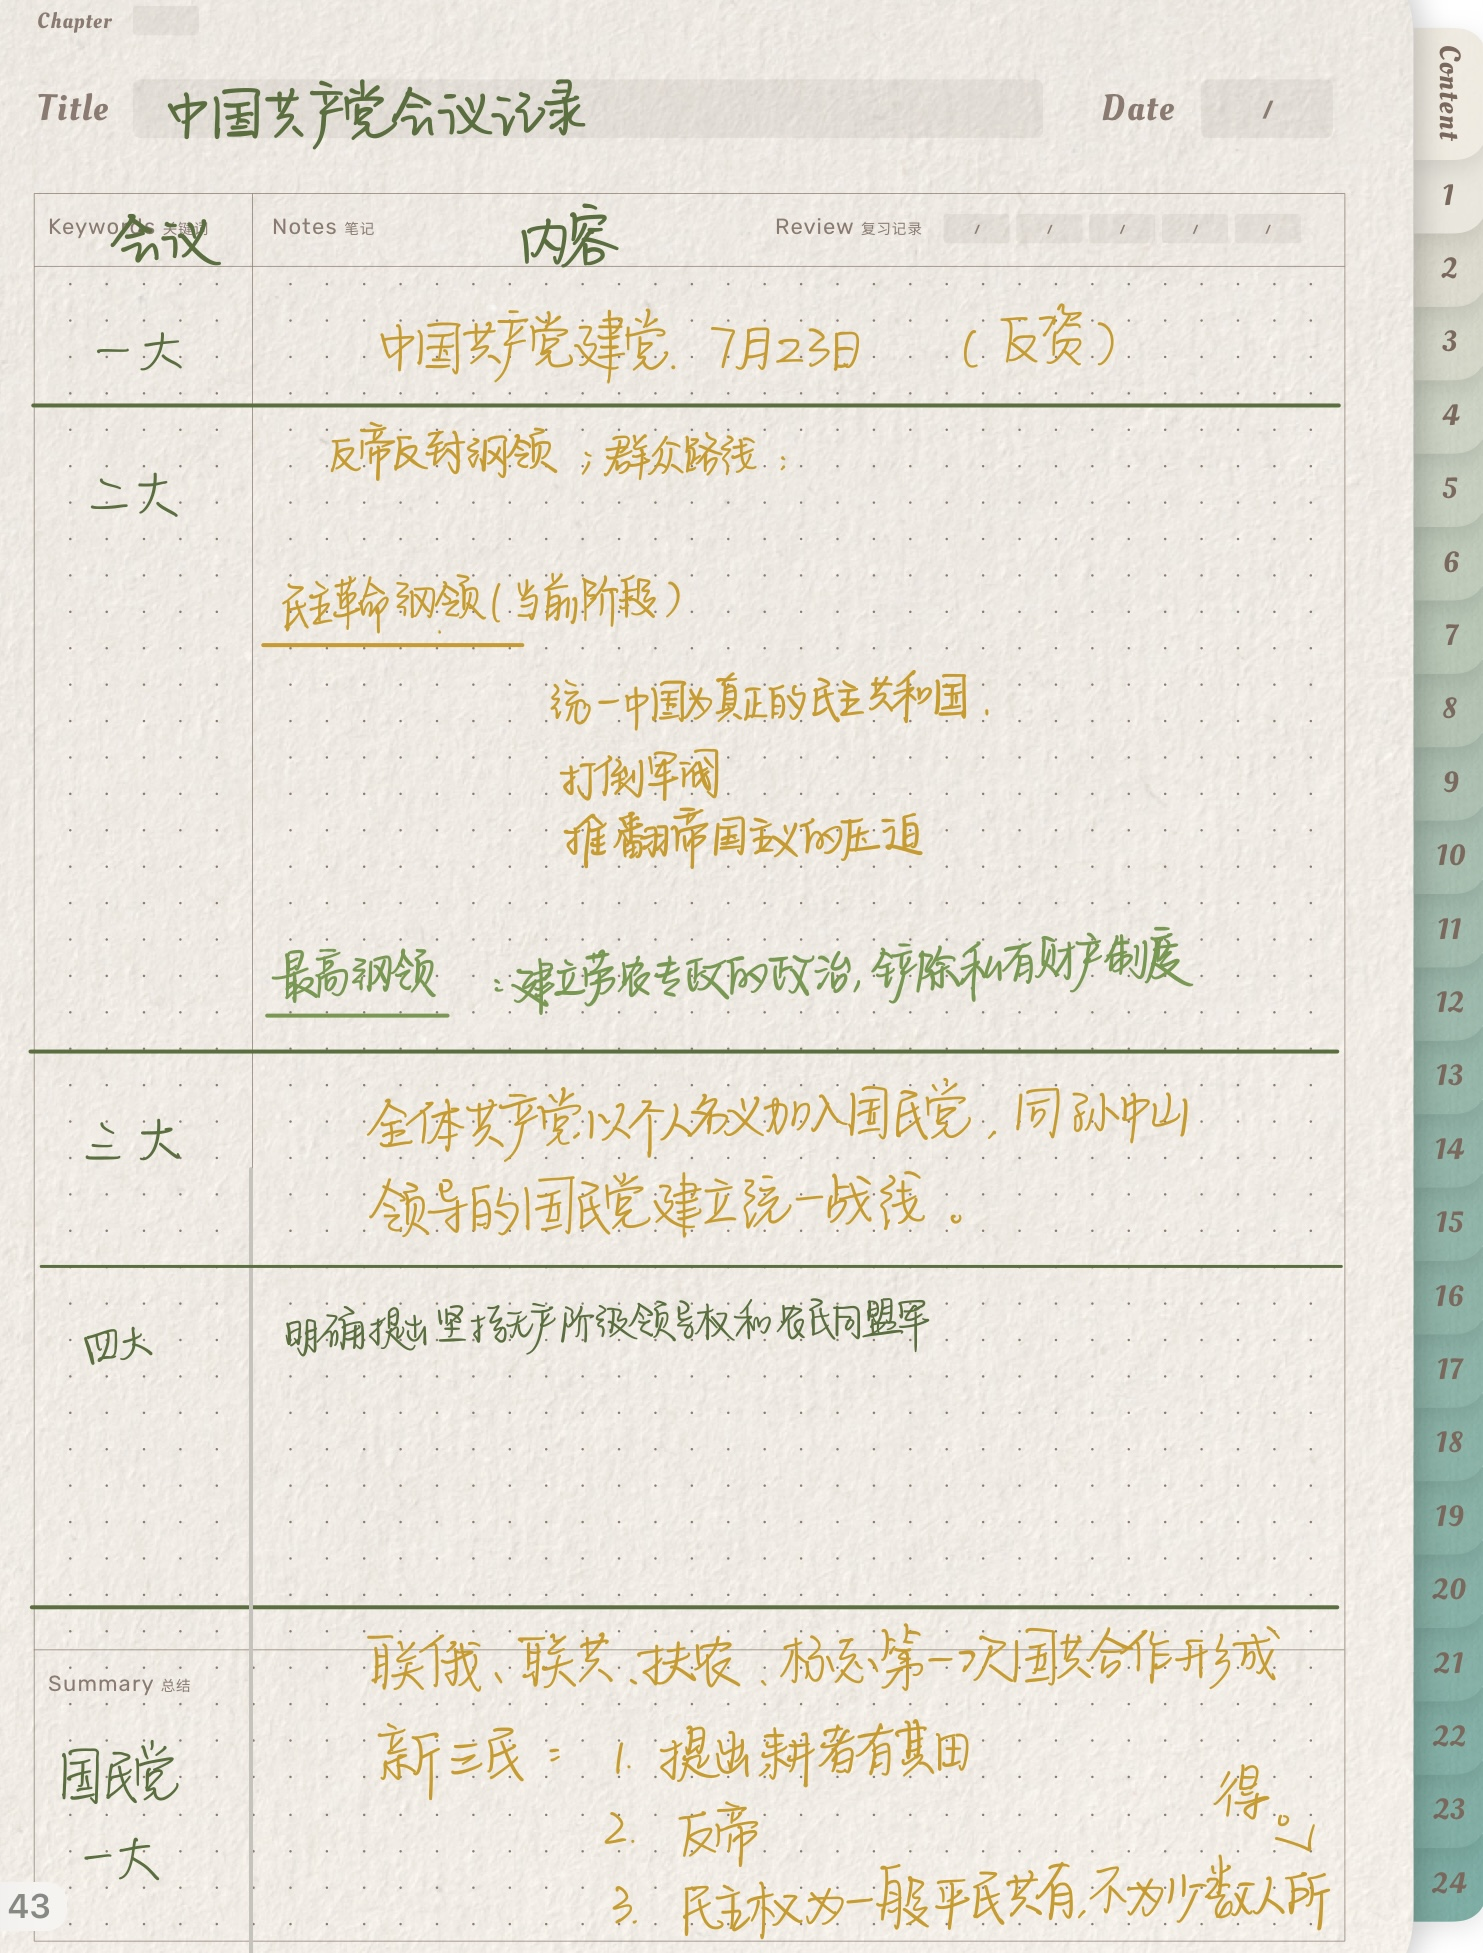 Chapter
Title 中国共产党会议记录 Date /
Content
Keywords 关键词 会议 Notes 笔记 内容 Review 复习记录 / / / / /
一大 中国共产党建党. 7月23日 (反资)
二大 反帝反封纲领;群众路线;
民主革命纲领(当前阶段)
统一中国为真正的民主共和国.
打倒军阀
推翻帝国主义的压迫
最高纲领 :建立劳农专政的政治,铲除私有财产制度
三大 全体共产党以个人名义加入国民党,同孙中山
领导的国民党建立统一战线。
四大 明确提出坚持无产阶级领导权和农民同盟军
联俄、联共、扶农、标志第一次国共合作形成
Summary 总结
国民党
一大
新三民: 1. 提出耕者有其田
2. 反帝
3. 民主权为一般平民共有,不为少数人所
得。」
43
1
2
3
4
5
6
7
8
9
10
11
12
13
14
15
16
17
18
19
20
21
22
23
24